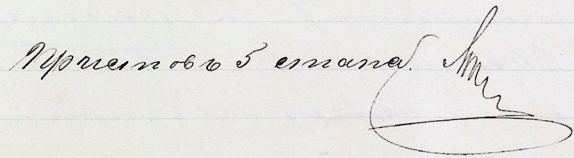 Приставъ 5 стана